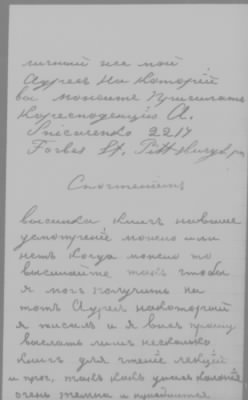 личний же мой
адресъ на которій
вы можите присилать
кореспонденцію А.
2214
Forbes St. Pittsburgh pa
висилка книгъ на ваше
усмотреніе можно или
нетъ когда можно то
висилайте такъ чтоби
я могъ получить на
тотъ адресъ на которий
я писалъ и я васъ прошу
выслать лишъ несколко
книгъ для чтенія лекцій
и проч, такъ какъ
очень темна и